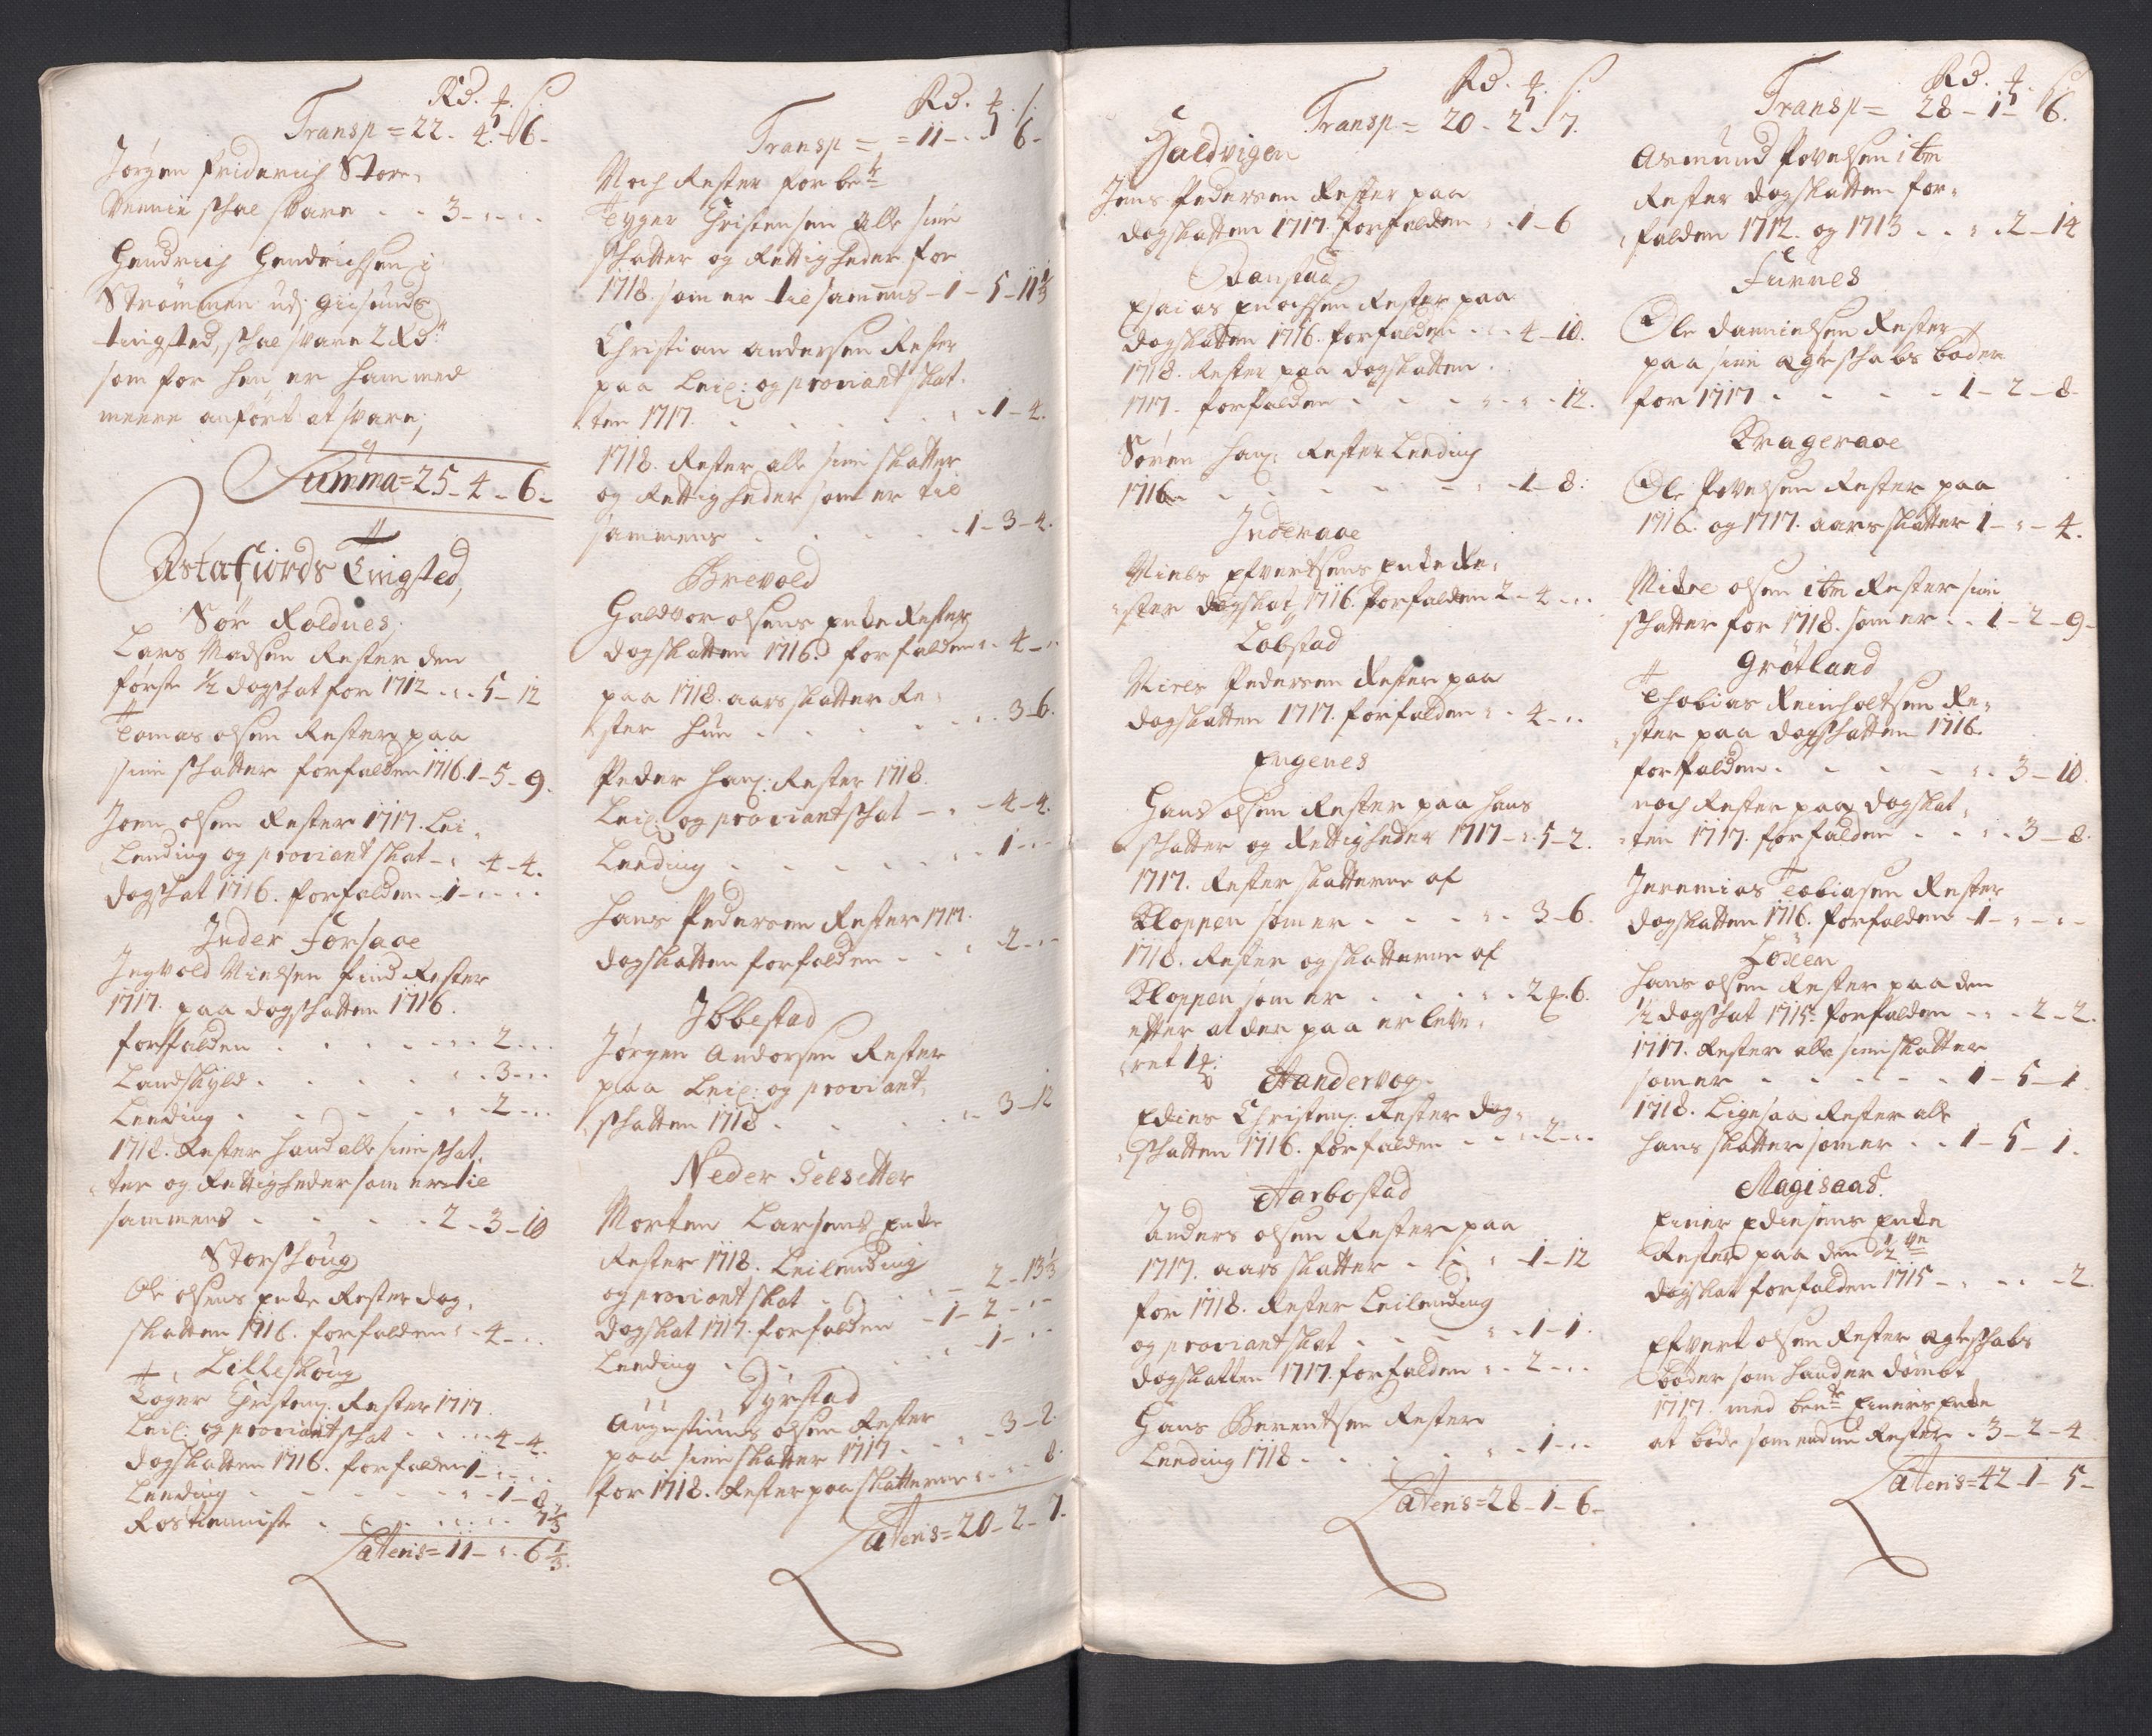 Rd. ₰. ß.
Transp = 22. 4. 6 -
Jørgen Friderich Store,
Mennie schal svare - - 3 - - -
Hendrich Hendrichsen i
Strømmen udj Giisunds
tingsted, schal svare 2 Rd:
som for hen er ham med
meere anført at svare;
Summa = 25 - 4 - 6 -
Astafiords Tingsted,
Sør Roldnes,
Lars Madsen Rester den
første 1/2 dagschat for 1712 - - 5 - 12
Tomas olsen Rester paa
sine schatter forfalden 1716. 1 - 5 - 9.
Joen olsen Rester 1717. Lei,
Lending og proviant skat - - 4 - 4.
dagschat 1716. forfalden - 1 - - -
Inder Forsaae
Ingvold Nielsen find Rester
1717. paa dagschatten 1716.
forfalden - - - - - 2 - -
Landskyld - - - - - 3 - -
Leeding - - - - - 2 - -
1718. Rester hand alle sine schat,
ter og Rettigheder som er til
sammens - - - - 2 - 3 - 10
Storshoug
Ole olsens Encke Rester dag,
skatten 1716. forfalden - 4 - -
Lilleskoug
Toger Christens: Rester 1717.
Leil: og proviant schat - - - 4 - 4.
dagskatten 1716. forfalden 1 - - -
Leeding - - - - - 1 - 8
Rostienniste - - - - - 7 1/3
Lateris = 11 - - 6 1/3.

Rd. ₰. ß.
Transp = = 11 - - 6 -
Noch Rester for bete
Tyger Christensen Alle sine
schatter og Rettigheder for
1718. som er tilsamens - 1 - 5 - 11 1/3
Christian andersen Rester
paa Leil: og proviant skat,
ten 1717. - - - - - 1 - 4.
1718. Rester alle sine skatter
og Rettigheder som er til
sammens - - - - 1 - 3 - 4.
Brevold
Haldvor olsens Encke Rester
dagskatten 1716. forfalden - 4 - -
paa 1718. aars skatter Re,
ster hun - - - - - 3 - 6.
Peder Hans: Rester 1718.
Leil: og proviantschat - - - 4 - 4.
Leeding - - - - - 1 - -
Hans Pedersen Rester 1717.
dagskatten forfalden - - - 2 - -
Ibbestad
Jørgen Andersen Rester
paa Leil: og proviant,
schatten 1718 - - - - - 3 - 12
Neder Selsetter
Morten Larsens Encke
Rester 1718. Leilending
og proviant skat - - - - 2 - 13 1/3
dagskat 1717. forfalden - 1 - 2 - -
Leeding - - - - - 1 - -
Dyrstad
Augustinus olsen Rester
paa sine skatter 1717 - - - 3 - 2.
for 1718. Rester paa skatterne - - - 8.
Lateris = 20 - 2 - 7.

Rd. ₰. ß.
Transp = 20 - 2 - 7.
Haldvigen
Jens Pedersen Rester paa
dagskatten 1717. forfalden - - 1 - 6
Danstad
Esaias Enochsen Rester paa
dagskatten 1716. forfalden - - 4 - 10.
1718. Rester paa dagskatten
1717. forfalden - - - - - 12.
Søren Hans: Rester Leeding
1716. - - - - - 1 - 8.
Inderaae
Niels Efvertsens Encke Re,
ster dagskat 1716. forfalden 2 - 4 - -
Løbstad
Niels Pedersen Rester paa
dagskatten 1717. forfalden - 4 - -
Engenes
Hans olsen Rester paa hans
schatter og Rettigheder 1717 - - 5 - 2.
1717. Rester skatterne af
Kloppen som er - - - - 3 - 6.
1718. Rester og skatterne af
Kloppen som er - - - - 2 ₰. 6.
efter at der paa er leve,
ret 1 ₰.
Handervog
Edies Christens: Rester dag,
schatten 1716. forfalden - - - 2 - -
Aarbostad
Anders olsen Rester paa
1717. aars skatter - - - 1 - 12
for 1718. Rester Leilending
og proviant skat - - - - 1 - 1.
dagskatten 1717. forfalden - 2 - -
Hans Berentsen Rester
Leeding 1718 - - - - - 1 - -
Lateris = 28 - 1 - 6 -

Rd. ₰. ß.
Transp = 28 - 1 - 6.
Asmund Povelsen ibm
Rester dagskatten for,
falden 1712. og 1713 - - - 2 - 14
Furnes
Ole Danielsen Rester
paa sine ægteschabs bøder
for 1717 - - - - 1 - 2 - 8.
Krageraae
Ole Povelsen Rester paa
1716. og 1717. aars skatter 1 - - - 4.
Mickel olsen ibm Rester sine
schatter for 1718. som er - - 1 - 2 - 9 -
Grøtland
Thobias Reinholtsen Re,
ster paa dagschatten 1716.
forfalden - - - - - 3 - 10.
noch Rester paa dagskat,
ten 1717. forfalden - - - 3 - 8.
Jeremias Tobiasen Rester
dagskatten 1716. forfalden 1 - - - -
Løxen
Hans olsen Rester paa den
1/2 dagschat 1715. forfalden - - 2 - 2.
1717. Rester alle sine skatter
som er - - - - - 1 - 5 - 1.
1718. Ligesaa Rester alle
hans skatter som er - - 1 - 5 - 1.
Magisaas.
Einer Ediesens Encke
Rester paa den 1/2 ve
dagskat forfalden 1715 - - - - 2.
Efvert olsen Rester ægteschabs
bøder som hand er dømbt
1717. med bente Einers Encke
at bøde som endnu Rester - 3 - 2 - 4
Lateris = 42 - 1 - 5 -